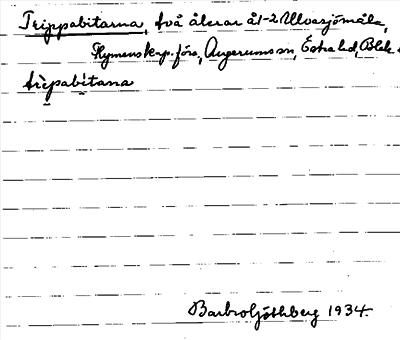 Trippabitarna, två åkrar å 1-2 Ulvasjömåla,
Flymens kap. förs, Augerums sn, Östra hd, Blek.
tripabitana
Barbro Göthberg 1934.